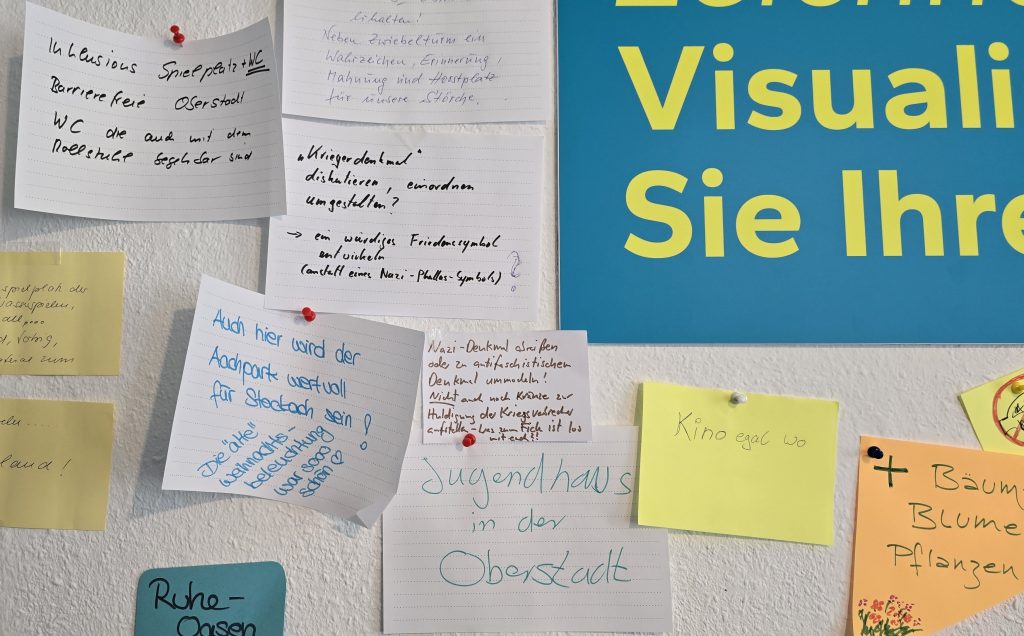 Inklusions Spielplatz + WC
Barrierefreie Oberstadt
WC die auch mit dem
Rollstuhl begehbar sind
erhalten!
Neben Zwiebelturm ein
Wahrzeichen, Erinnerung,
Mahnung und Horstplatz
für unsere Störche.
"Kriegerdenkmal"
diskutieren, einordnen
umgestalten?
→ ein würdiges Friedenssymbol
entwickeln
(anstatt eines Nazi-Phallus-Symbols)
Visuali
Sie Ihre
Auch hier wird der
Aachpark wertvoll
für Stockach sein!
Die "alte"
Weihnachts-
beleuchtung
war sooo
schön ♡
Nazi-Denkmal abreißen
oder zu antifaschistischem
Denkmal ummodeln!
Nicht auch noch Kränze zur
Huldigung der Kriegsverbrecher
aufstellen - was zum F*ck ist los
mit euch?!
Jugendhaus
in der
Oberstadt
Kino egal wo
+ Bäum
Blume
Pflanzen
Ruhe-
Oasen